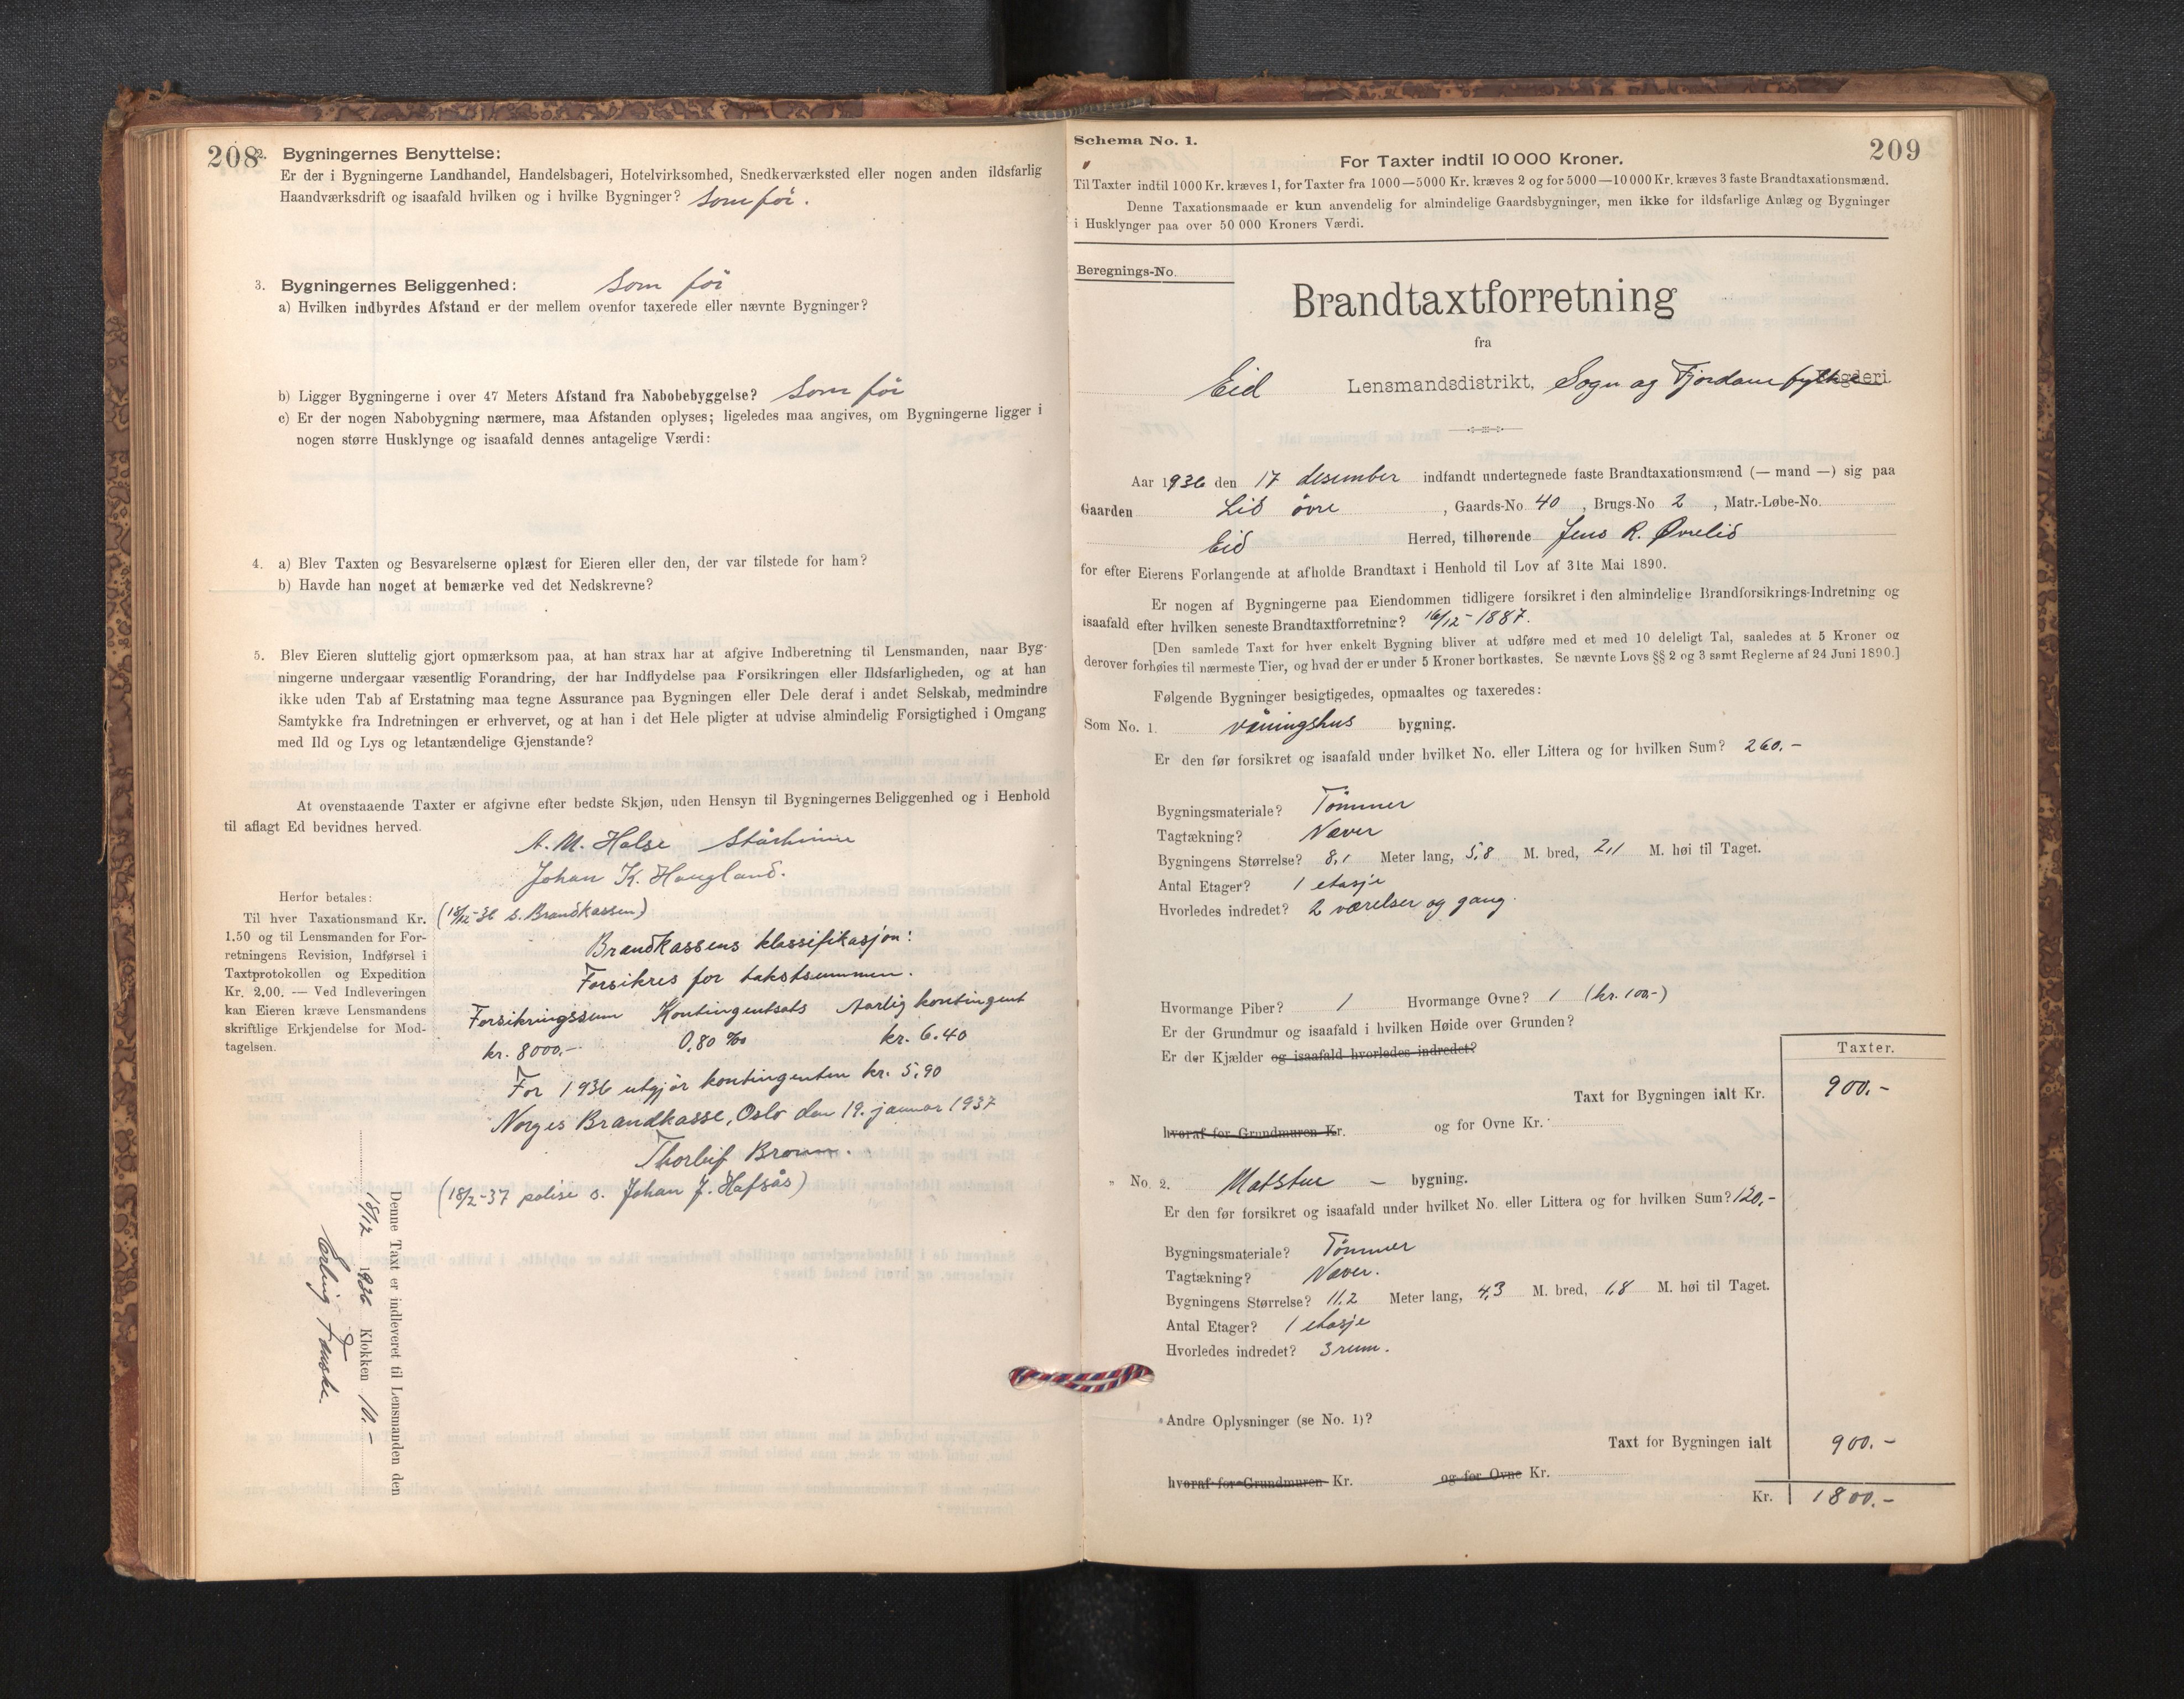 208
2. Bygningernes Benyttelse:
Er der i Bygningerne Landhandel, Handelsbageri, Hotelvirksomhed, Snedkerværksted eller nogen anden ildsfarlig
Haandværksdrift og isaafald hvilken og i hvilke Bygninger? Som før.
3. Bygningernes Beliggenhed: Som før
a) Hvilken indbyrdes Afstand er der mellem ovenfor taxerede eller nævnte Bygninger?
b) Ligger Bygningerne i over 47 Meters Afstand fra Nabobebyggelse? Som før
c) Er der nogen Nabobygning nærmere, maa Afstanden oplyses; ligeledes maa angives, om Bygningerne ligger i
nogen større Husklynge og isaafald dennes antagelige Værdi:
4. a) Blev Taxten og Besvarelserne oplæst for Eieren eller den, der var tilstede for ham?
b) Havde han noget at bemærke ved det Nedskrevne?
5. Blev Eieren sluttelig gjort opmærksom paa, at han strax har at afgive Indberetning til Lensmanden, naar Byg-
ningerne undergaar væsentlig Forandring, der har Indflydelse paa Forsikringen eller Ildsfarligheden, og at han
ikke uden Tab af Erstatning maa tegne Assurance paa Bygningen eller Dele deraf i andet Selskab, medmindre
Samtykke fra Indretningen er erhvervet, og at han i det Hele pligter at udvise almindelig Forsigtighed i Omgang
med Ild og Lys og letantændelige Gjenstande?
At ovenstaaende Taxter er afgivne efter bedste Skjøn, uden Hensyn til Bygningernes Beliggenhed og i Henhold
til aflagt Ed bevidnes herved.
A. M. Halse Stårheim
Johan K. Haugland.
Herfor betales:
Til hver Taxationsmand Kr.
1.50 og til Lensmanden for For-
retningens Revision, Indførsel i
Taxtprotokollen og Expedition
Kr. 2.00. — Ved Indleveringen
kan Eieren kræve Lensmandens
skriftlige Erkjendelse for Mod-
tagelsen.
(18/12-36 s. Brandkassen)
Brandkassens klassifikasjon:
Forsikres for takstsummen.
Forsikringssum Kontingentsats Aarlig kontingent
kr. 8000.- 0,80 ‰ kr. 6.40
For 1936 utgjør kontingenten kr. 5,90
Norges Brandkasse, Oslo den 19. januar 1937
Thorleif Broun.
(18/2-37 polise s. Johan J. Hafsås)
Denne Taxt er indleveret til Lensmanden den
18/12 1936 Klokken 10.-
Erling Fauske
209
Schema No. 1.
For Taxter indtil 10 000 Kroner.
Til Taxter indtil 1000 Kr. kræves 1, for Taxter fra 1000—5000 Kr. kræves 2 og for 5000—10 000 Kr. kræves 3 faste Brandtaxationsmænd.
Denne Taxationsmaade er kun anvendelig for almindelige Gaardsbygninger, men ikke for ildsfarlige Anlæg og Bygninger
i Husklynger paa over 50 000 Kroners Værdi.
Beregnings-No.
Brandtaxtforretning
fra
Eid Lensmandsdistrikt, Sogn og Fjordane fylke Fogderi.
Aar 1936 den 17 desember indfandt undertegnede faste Brandtaxationsmænd (— mand —) sig paa
Gaarden Lid øvre, Gaards-No 40, Brugs-No 2, Matr.-Løbe-No.
Eid Herred, tilhørende Jens R. Øvrelid
for efter Eierens Forlangende at afholde Brandtaxt i Henhold til Lov af 31te Mai 1890.
Er nogen af Bygningerne paa Eiendommen tidligere forsikret i den almindelige Brandforsikrings-Indretning og
isaafald efter hvilken seneste Brandtaxtforretning? 16/12-1887.
[Den samlede Taxt for hver enkelt Bygning bliver at udføre med et med 10 deleligt Tal, saaledes at 5 Kroner og
derover forhøies til nærmeste Tier, og hvad der er under 5 Kroner bortkastes. Se nævnte Lovs §§ 2 og 3 samt Reglerne af 24 Juni 1890.]
Følgende Bygninger besigtigedes, opmaaltes og taxeredes:
Som No. 1. våningshus bygning.
Er den før forsikret og isaafald under hvilket No. eller Littera og for hvilken Sum? 260.-
Bygningsmateriale? Tømmer
Tagtækning? Næver
Bygningens Størrelse? 8,1 Meter lang, 5,8 M. bred, 2,1 M. høi til Taget.
Antal Etager? 1 etasje
Hvorledes indredet? 2 værelser og gang.
Hvormange Piber? 1 Hvormange Ovne? 1 (kr. 100.-)
Er der Grundmur og isaafald i hvilken Høide over Grunden?
Er der Kjælder og isaafald hvorledes indredet?
Taxter.
Taxt for Bygningen ialt Kr. 900.-
hvoraf for Grundmuren Kr. og for Ovne Kr.
" No. 2. Matstue - bygning.
Er den før forsikret og isaafald under hvilket No. eller Littera og for hvilken Sum? 120.-
Bygningsmateriale? Tømmer
Tagtækning? Næver.
Bygningens Størrelse? 11,2 Meter lang, 4,3 M. bred, 1,8 M. høi til Taget.
Antal Etager? 1 etasje
Hvorledes indredet? 3 rum.
Andre Oplysninger (se No. 1)?
Taxt for Bygningen ialt 900.-
hvoraf for Grundmuren Kr. og for Ovne Kr.
Kr. 1800.-